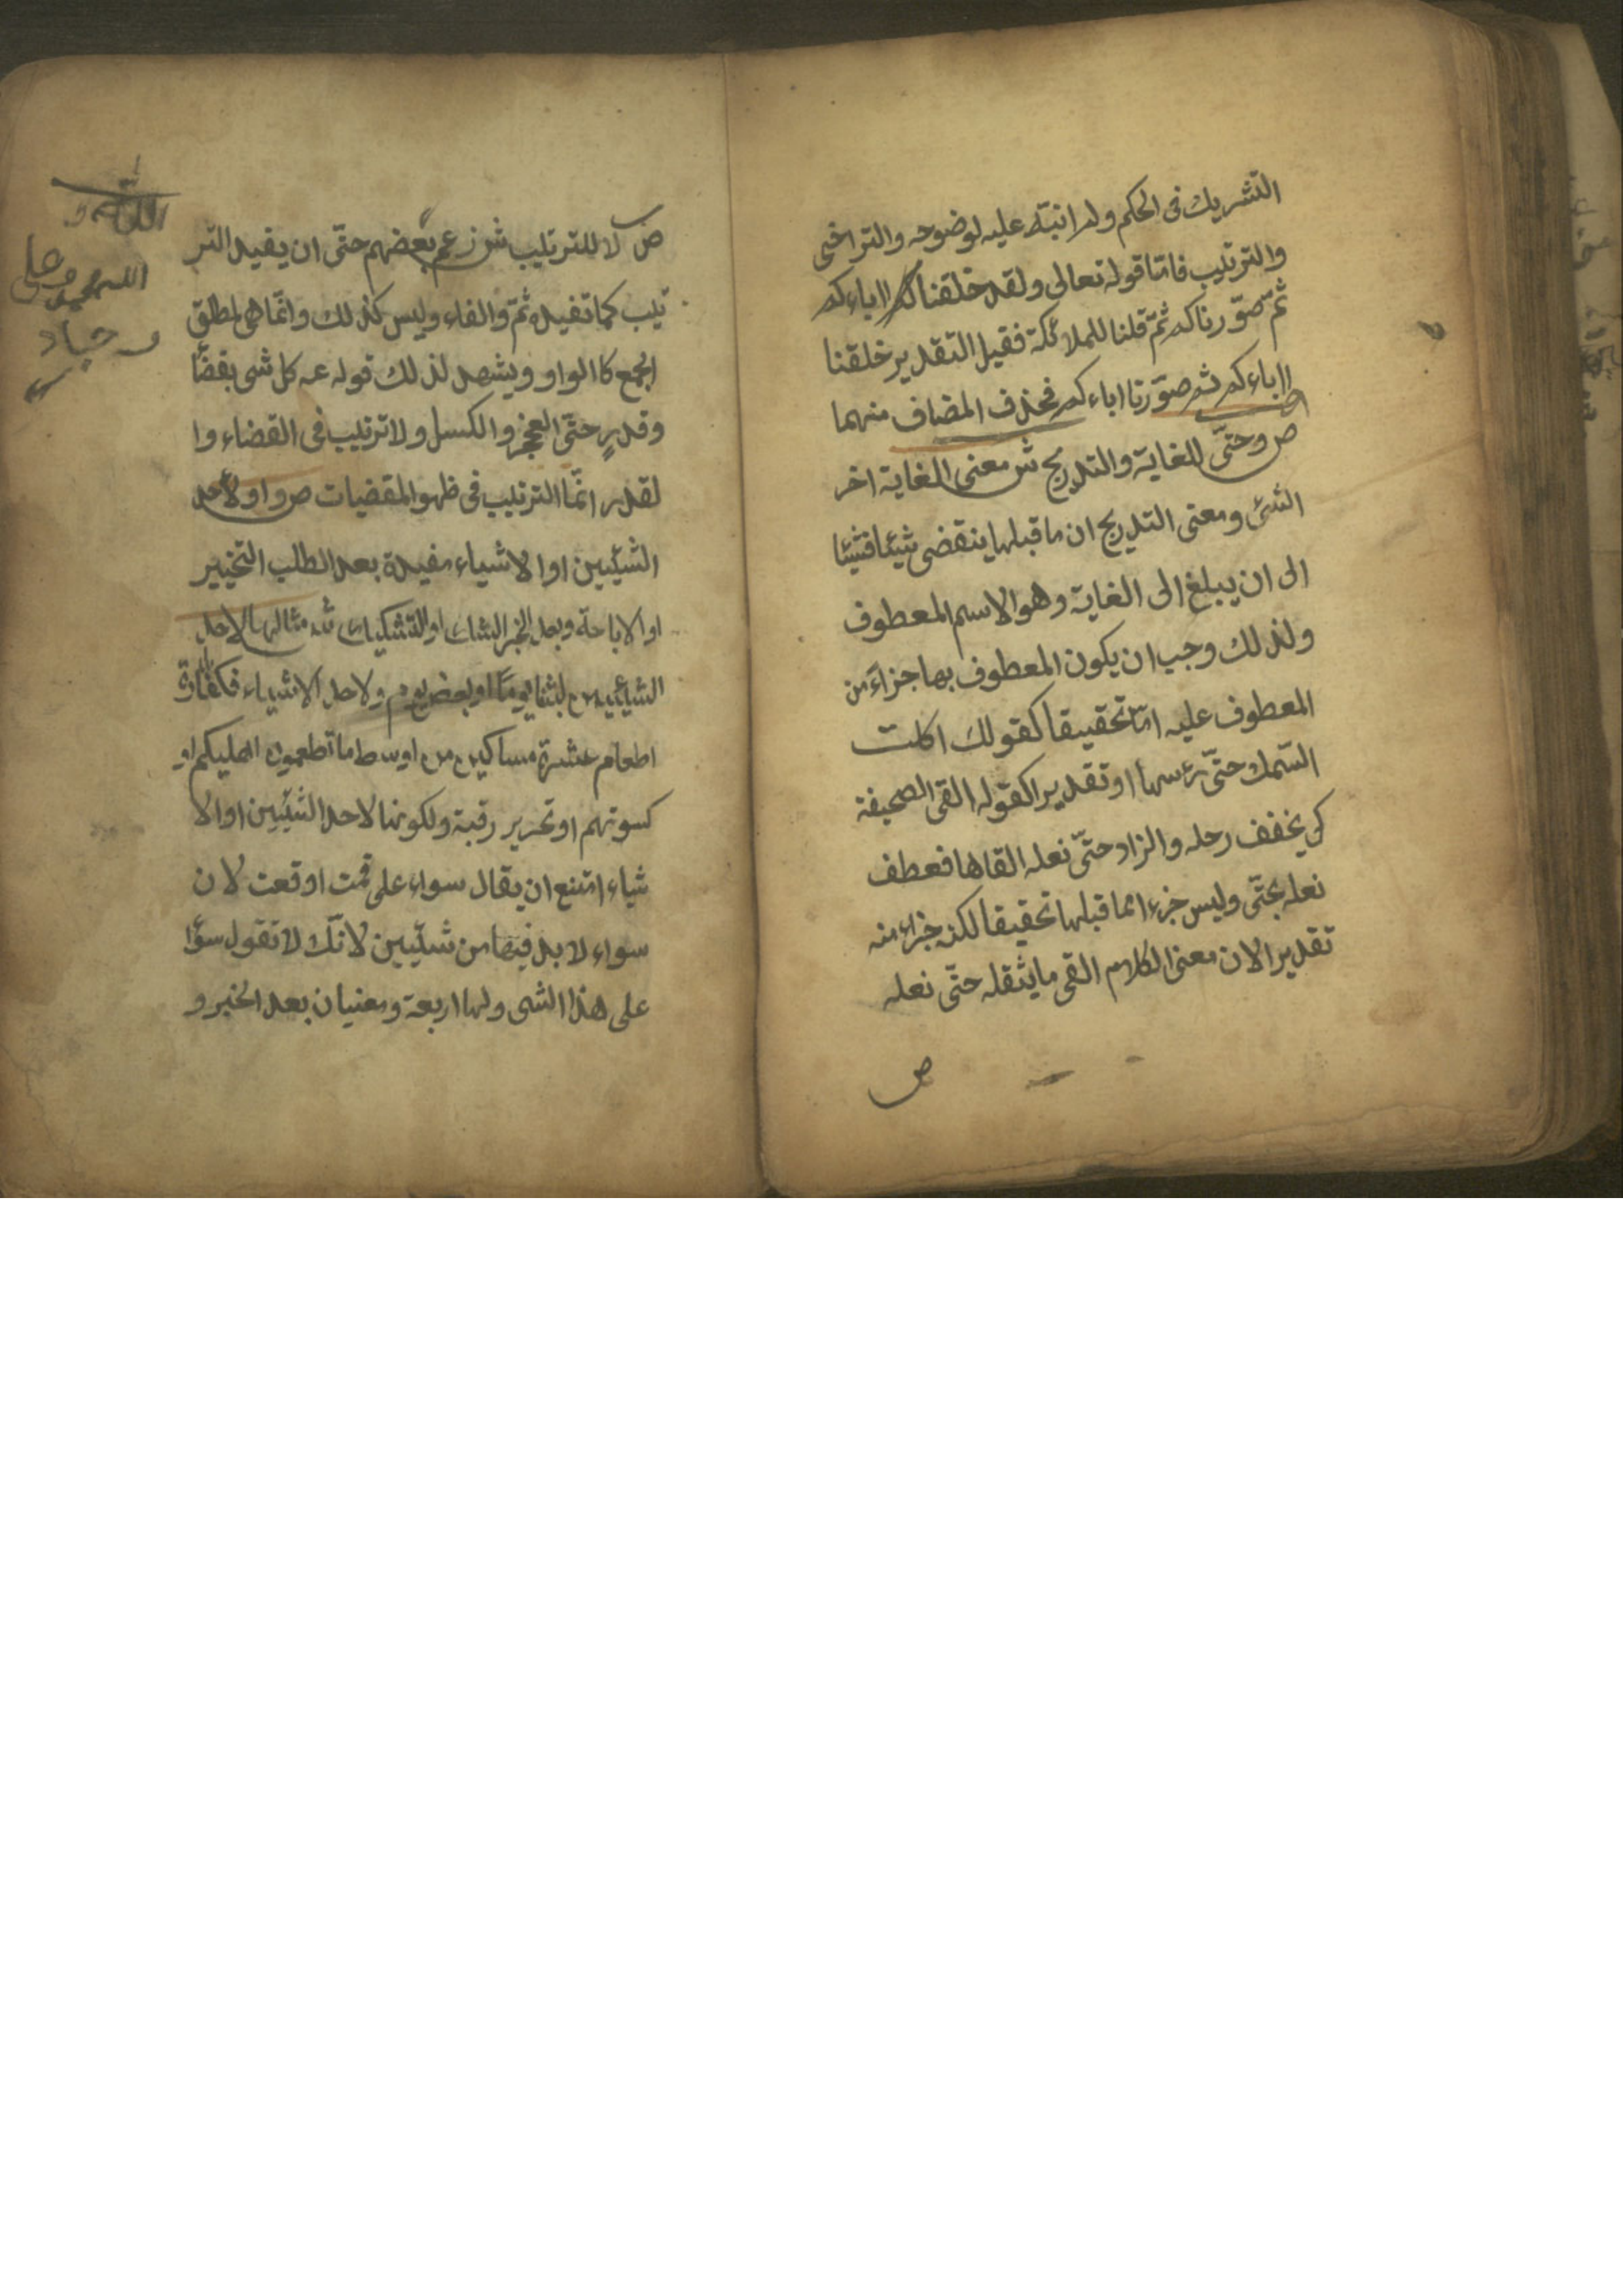 التشريك فى الحكم ولم انبّه عليه لوضوحه والتراخى
والترتيب فامّا قوله تعالى ولقد خلقناكم اباءكم
ثمّ صوّرناكم ثمّ قلنا للملائكة فقيل التقدير خلقنا
اباءكم ثم صوّرنا اباءكم فحذف المضاف منهما
ص وحتىّ للغاية والتدريج ش معنى الغاية اخر
الشئ ومعنى التدريج ان ما قبلها ينقضى شيئا فشيئا
الى ان يبلغ الى الغاية وهو الاسم المعطوف
ولذلك وجب ان يكون المعطوف بها جزاءً من
المعطوف عليه امّا تحقيقا كقولك اكلت
السّمك حتىّ رءسها او تقديرا كقوله القى الصحيفة
كى يخفف رحله والزاد حتىّ نعله القاها فعطف
نعله بحتىّ وليس جزء مما قبلها تحقيقا لكنه جزاء منه
تقديرا لان معنى الكلام القى ما يثقله حتىّ نعله
ص
ص لا للترتيب ش زعم بعضهم حتىّ ان يفيد التر
تيب كما تفيده ثمّ والفاء وليس كذلك وانمّا هى لمطلق
الجمع كاالواو ويشهد لذلك قوله عه كل شى بقضًا
وقدرٍ حتىّ العجز والكسل ولا ترتيب فى القضاء وا
لقدر انمّا الترتيب فى ظهو المقضيات ص واو لأحد
الشيئين اوا لاشياء مفيدة بعد الطلب التخيير
او الاباحة وبعد الخبر الشك او التشكيك ش مثالها لاحد
الشيئين لبثنا يومًا او بعض يوم ولاحد الاشياء فكفّارة
اطعام عشرة مساكين من اوسط ما تطعمون اهليكم او
كسوتهم او تحرير رقبة ولكونها لاحد الشيئين اوا لا
شياء امتنع ان يقال سواء على قمت او قعت لان
سواء لا بد فيها من شيئين لانّك لا تقول سوًا
على هذا الشى ولها اربعة ومعنيان بعد الخبر و